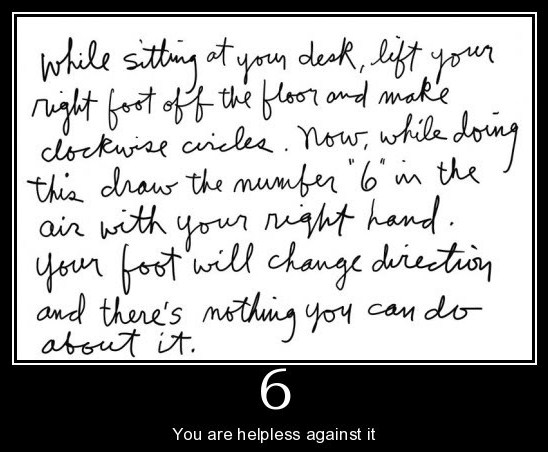 While sitting at your desk, lift your
right foot off the floor and make
clockwise circles. Now, while doing
this draw the number "6" in the
air with your right hand.
Your foot will change direction
and there's nothing you can do
about it.
6
You are helpless against it